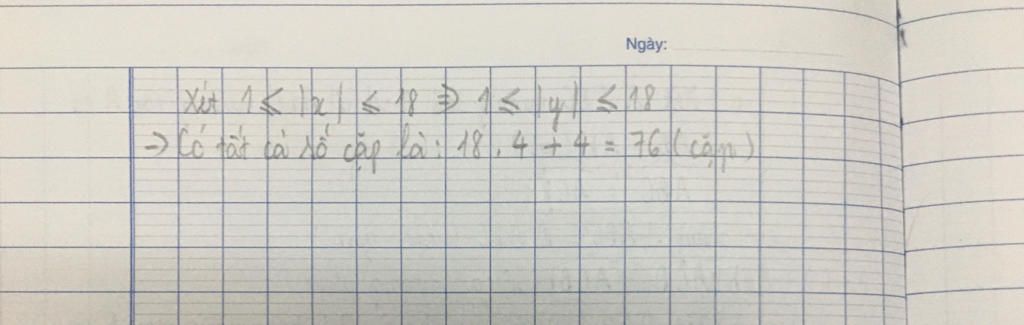 Ngày:
Xét 1 ≤ |x| ≤ 18 ⇒ 1 ≤ |y| ≤ 18
→ Có tất cả số cặp là: 18 . 4 + 4 = 76 (cặp)